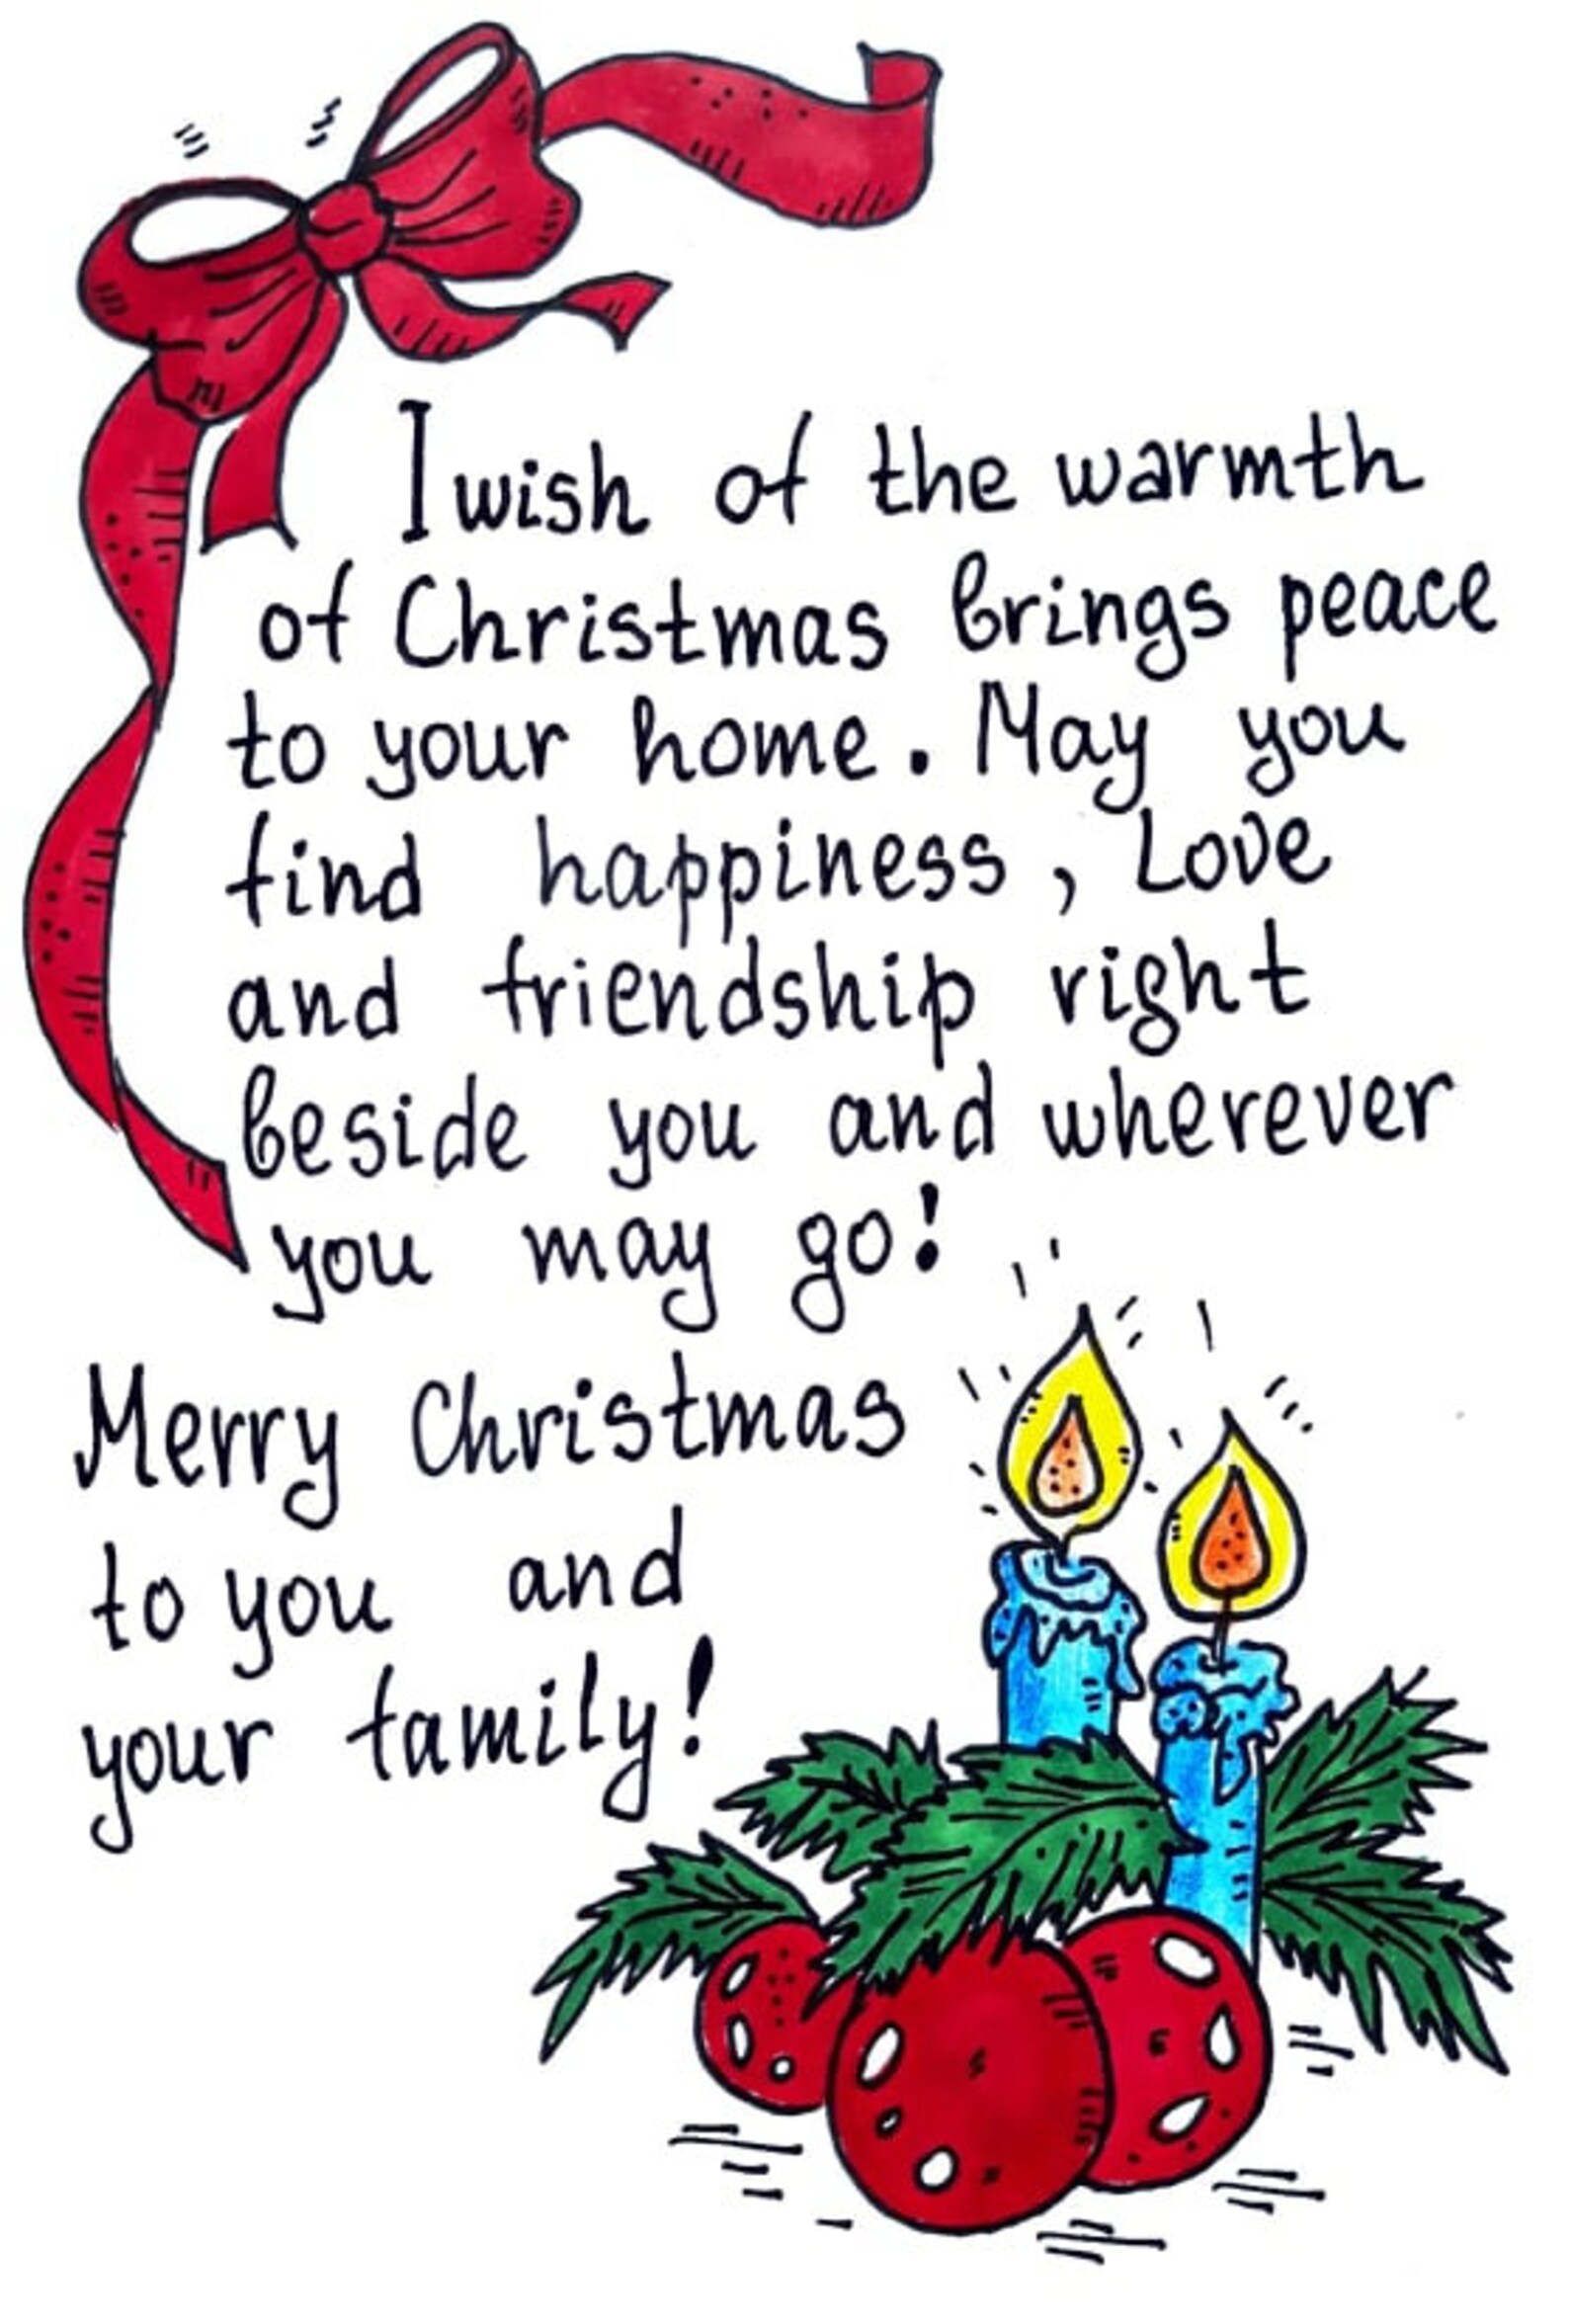 I wish of the warmth
of Christmas brings peace
to your home. May you
find happiness, Love
and friendship right
beside you and wherever
you may go!
Merry Christmas
to you and
your family!